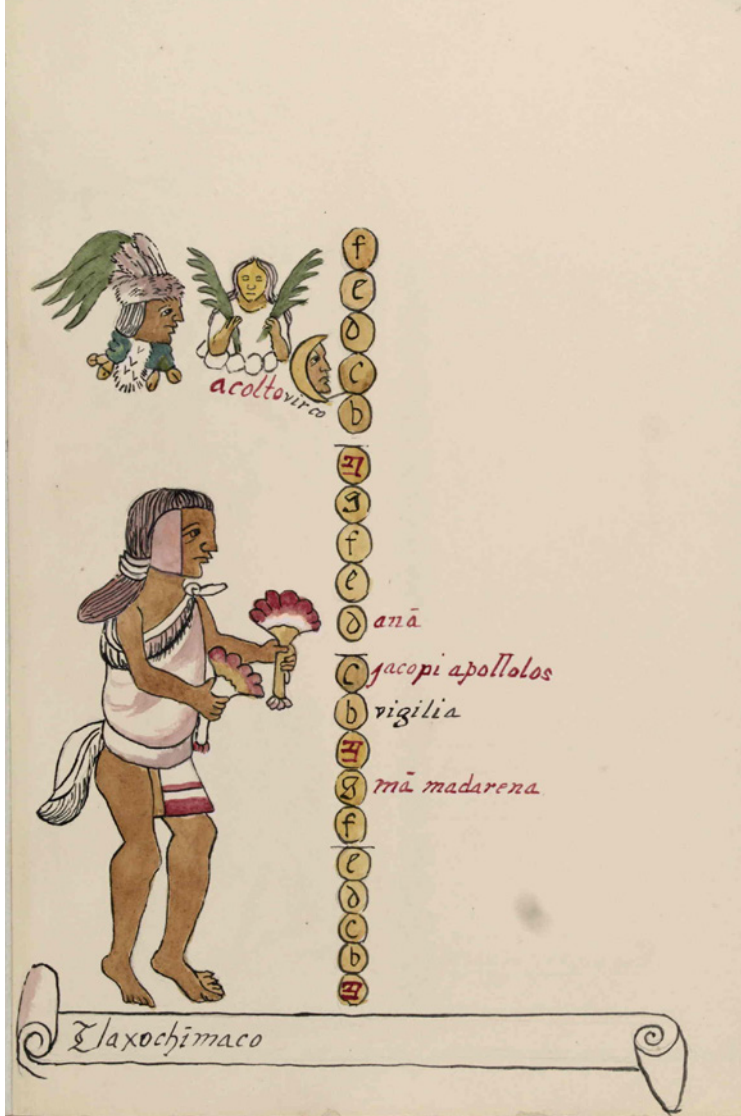 f
e
d
c
acolto virco
b
A
g
f
e
d anā
c jacopi apoſtolos
b vigilia
A
g mā madarena
f
e
d
c
b
A
Tlaxochimaco